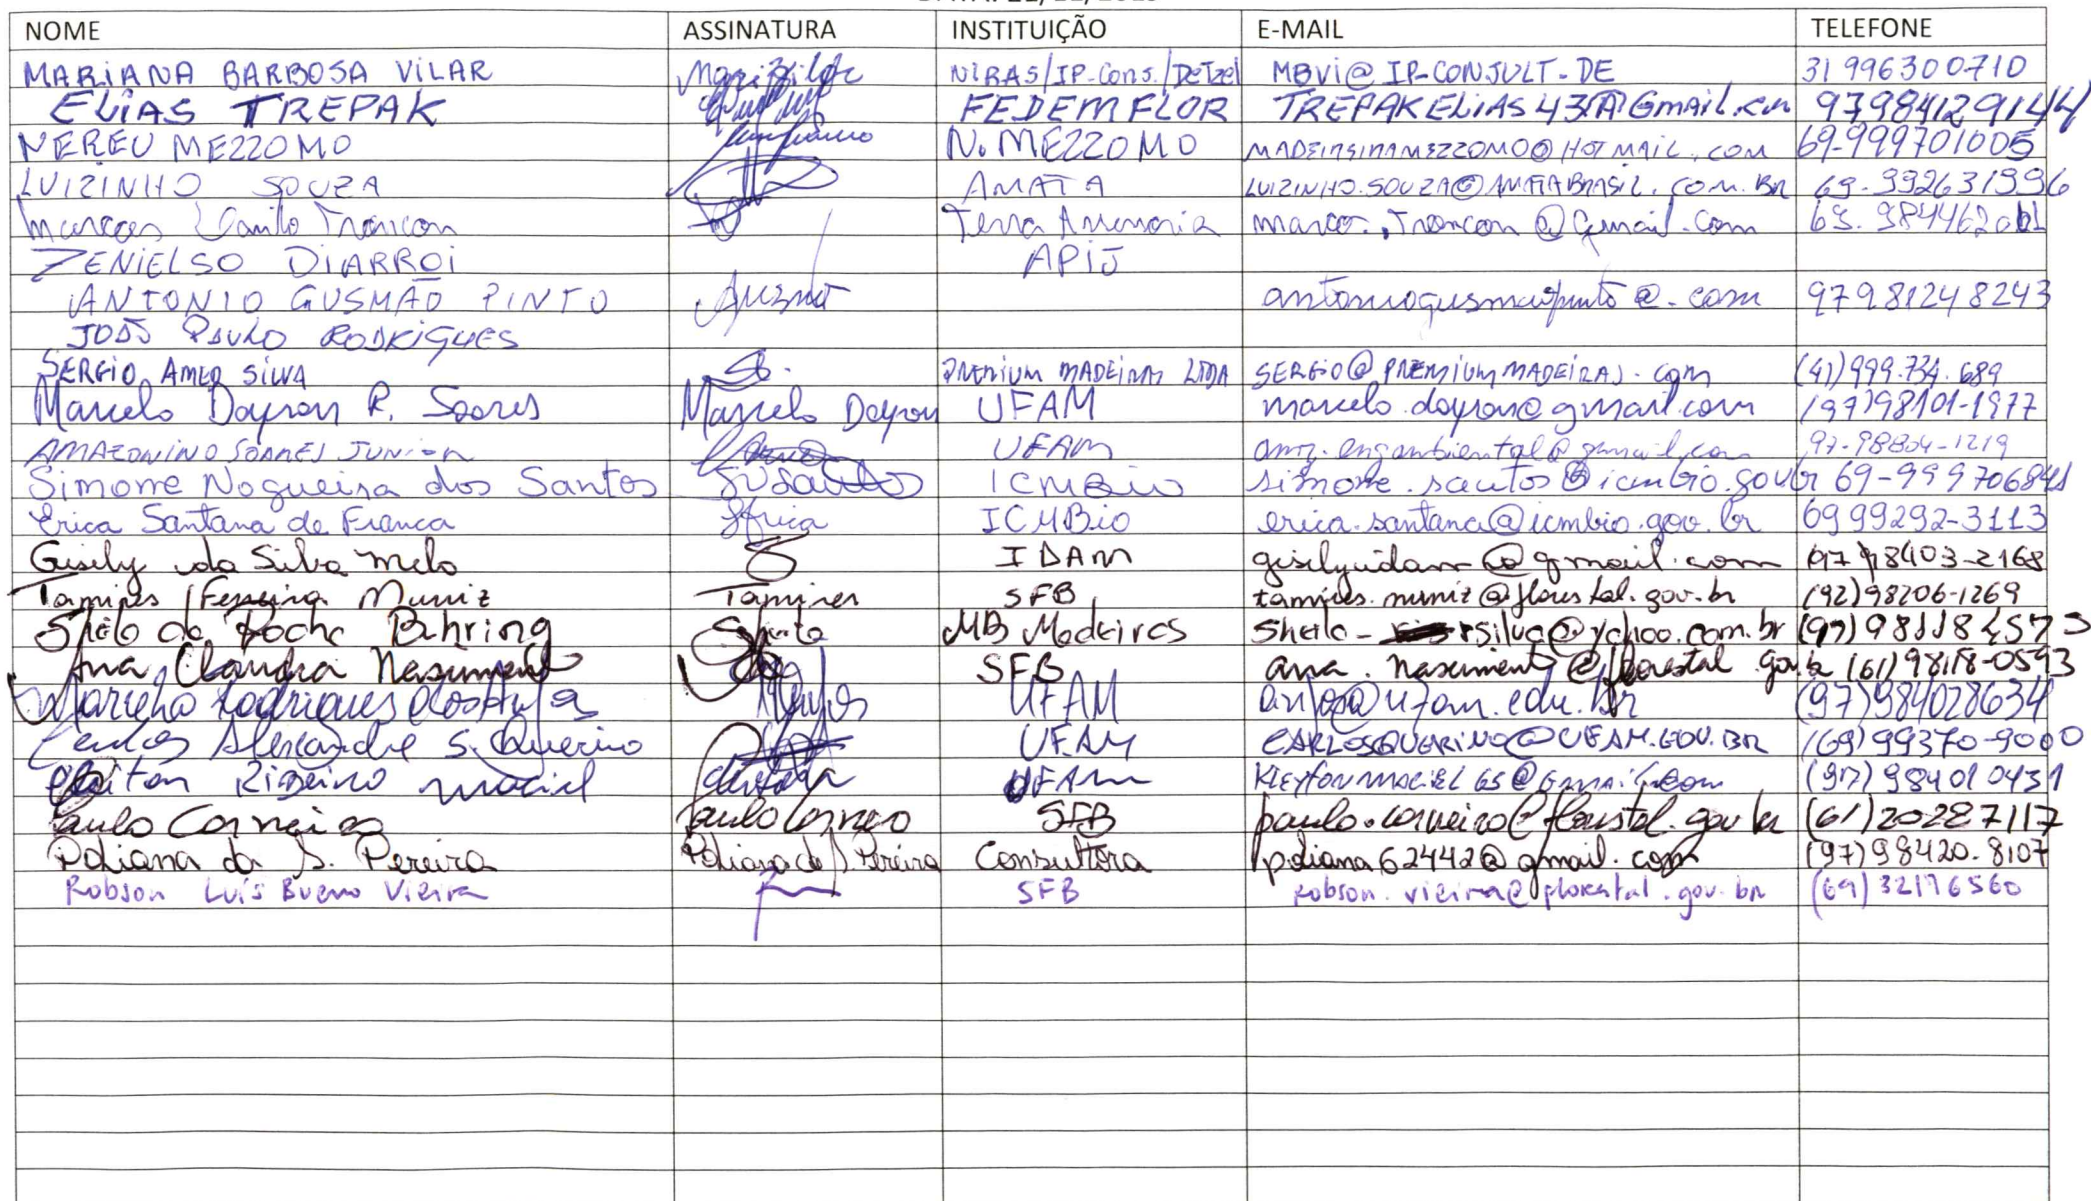 NOME ASSINATURA INSTITUIÇÃO E-MAIL TELEFONE
MARIANA BARBOSA VILAR NIRAS/IP-Cons./Detzel MBVI@IP-CONSULT.DE 31 996300710
ELIAS TREPAK FEDEMFLOR TREPAKELIAS43@Gmail.com 97984129144
NEREU MEZZOMO N. MEZZOMO 69-999701005
LUIZINHO SOUZA AMATA LUIZINHO.SOUZA@AMATABRASIL.COM.BR 69-992631996
Danilo Troncon Terra
ZENIELSO DIARROI APIJ
ANTONIO GUSMÃO PINTO antoniogusmaopinto@.com 97981248243
JOÃO PAULO RODRIGUES
SERGIO AMED SILVA PREMIUM MADEIRAS LTDA SERGIO@PREMIUMMADEIRAS.com (41)999.734.689
Marcelo Dayron R. Soares Marcelo Dayron UFAM marcelo.dayron@gmail.com (97)98101-1977
AMAZONINO SOARES JUNIOR UFAM amz.engambiental@gmail.com 97-98804-1219
Simone Nogueira dos Santos ICMBio simone.santos@icmbio.gov.br 69-999706841
Erica Santana de Franca Erica ICMBio erica.santana@icmbio.gov.br 6999292-3113
Gisely da Silva Melo IDAM giselyidam@gmail.com (97)98403-2168
Tamires Ferreira Muniz Tamires SFB tamires.muniz@florestal.gov.br (92)98206-1269
da Rocha Behring MB Madeiras (97)981184573
Ana Claudia Nascimento SFB ana.nascimento@florestal.gov.br (61)98118-0593
Rodrigues dos Anjos UFAM anjos@ufam.edu.br (97)984028634
Carlos Alexandre S. Querino UFAM CARLOSQUERINO@UFAM.EDU.BR (69)99370-9000
Ribeiro Maciel UFAM (97)984010431
Paulo Carneiro Paulo Carneiro SFB paulo.carneiro@florestal.gov.br (61)20287117
Poliana da S. Pereira Poliana da S. Pereira Consultora poliana62442@gmail.com (97)98420.8107
Robson Luís Bueno Vieira SFB robson.vieira@florestal.gov.br (69)32176560